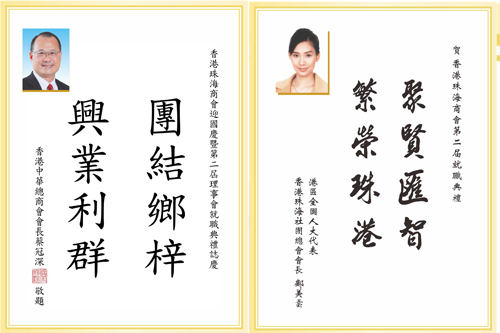 香港珠海商會迎國慶暨第二屆理事會就職典禮誌慶
團結鄉梓
興業利群
香港中華總商會會長蔡冠深 敬題
賀香港珠海商會第二屆就職典禮
聚賢匯智
繁榮珠港
港區全國人大代表
香港珠海社團總會會長 鄺美雲